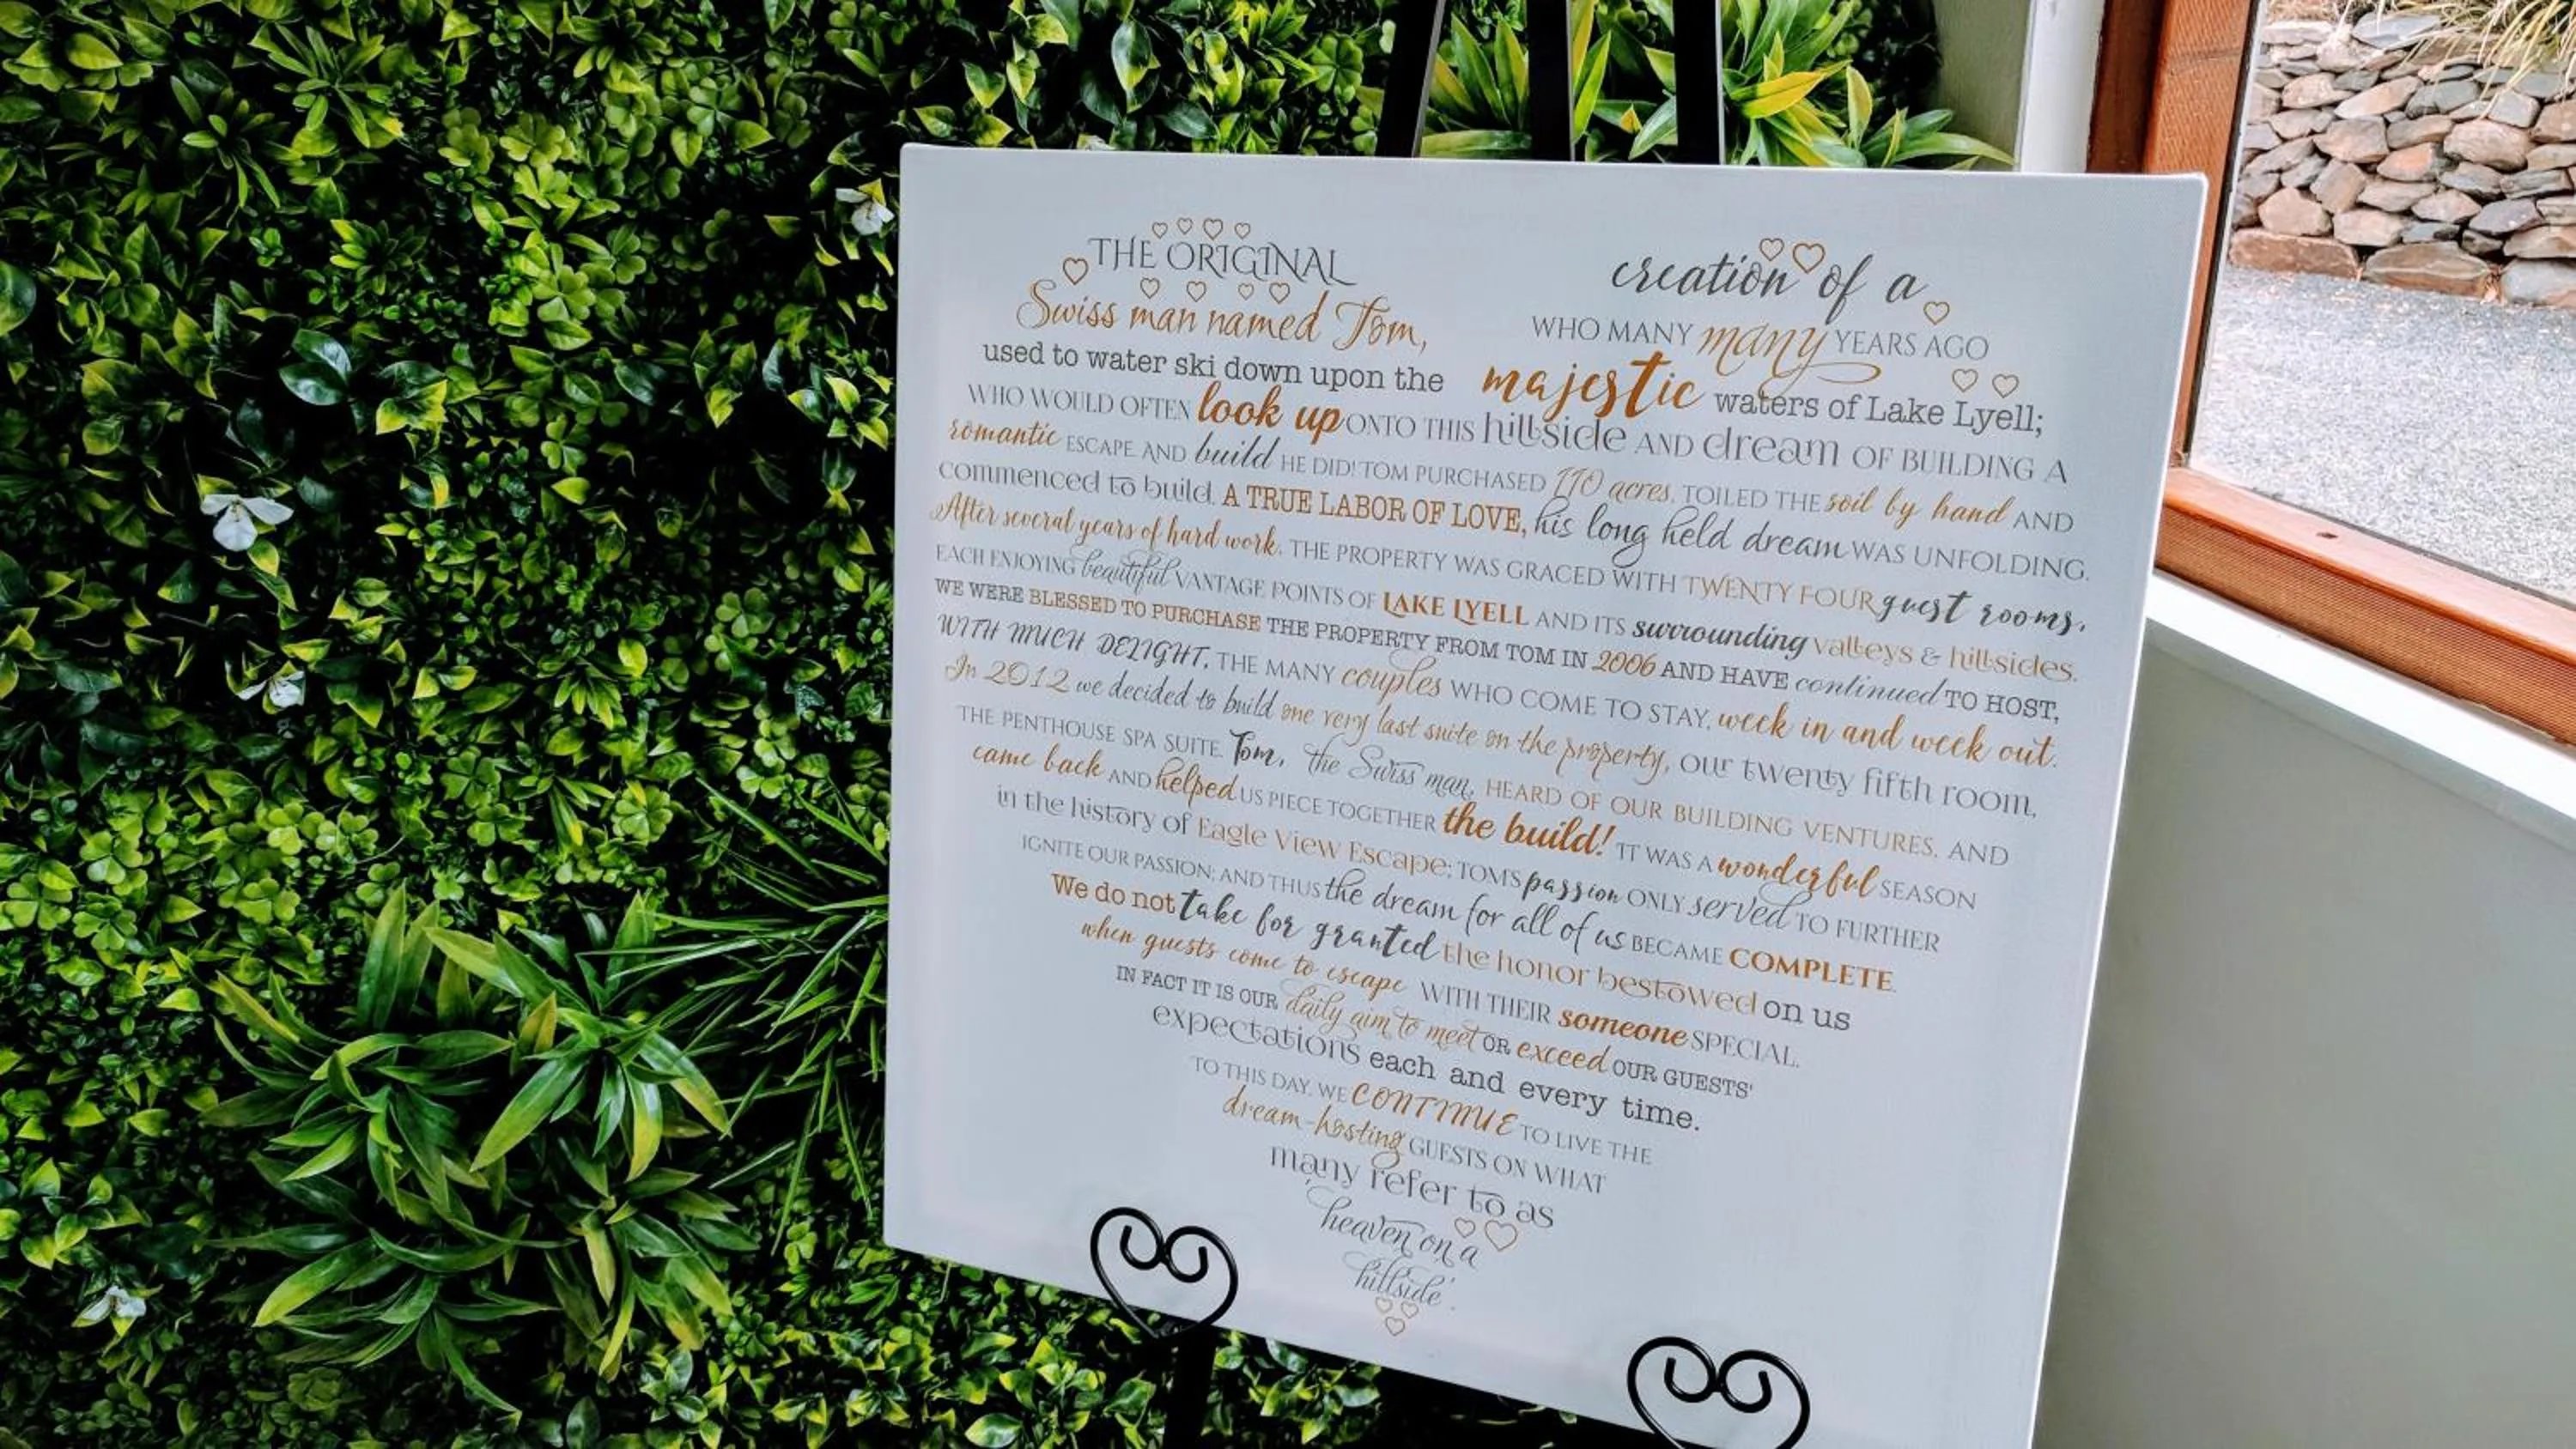 THE ORIGINAL creation of a
Swiss man named Tom, WHO MANY many YEARS AGO
used to water ski down upon the majestic waters of Lake Lyell;
WHO WOULD OFTEN look up ONTO THIS hillside AND dream OF BUILDING A
romantic ESCAPE. AND build HE DID! TOM PURCHASED 110 acres, TOILED THE soil by hand AND
commenced to build. A TRUE LABOR OF LOVE, his long held dream WAS UNFOLDING.
After several years of hard work, THE PROPERTY WAS GRACED WITH TWENTY FOUR guest rooms,
EACH ENJOYING beautiful VANTAGE POINTS OF LAKE LYELL AND ITS surrounding valleys & hillsides.
WE WERE BLESSED TO PURCHASE THE PROPERTY FROM TOM IN 2006 AND HAVE continued TO HOST,
WITH MUCH DELIGHT, THE MANY couples WHO COME TO STAY, week in and week out.
In 2012 we decided to build one very last suite on the property, our twenty fifth room,
THE PENTHOUSE SPA SUITE. Tom, the Swiss man, HEARD OF OUR BUILDING VENTURES, AND
came back AND helped US PIECE TOGETHER the build! IT WAS A wonderful SEASON
in the history of Eagle View Escape; TOM'S passion ONLY served TO FURTHER
IGNITE OUR PASSION; AND THUS the dream for all of us BECAME COMPLETE.
We do not take for granted the honor bestowed on us
when guests come to escape WITH THEIR someone SPECIAL.
IN FACT IT IS OUR daily aim to meet OR exceed OUR GUESTS'
expectations each and every time.
TO THIS DAY, WE CONTINUE TO LIVE THE
dream-hosting GUESTS ON WHAT
many refer to as
'heaven on a
hillside'.